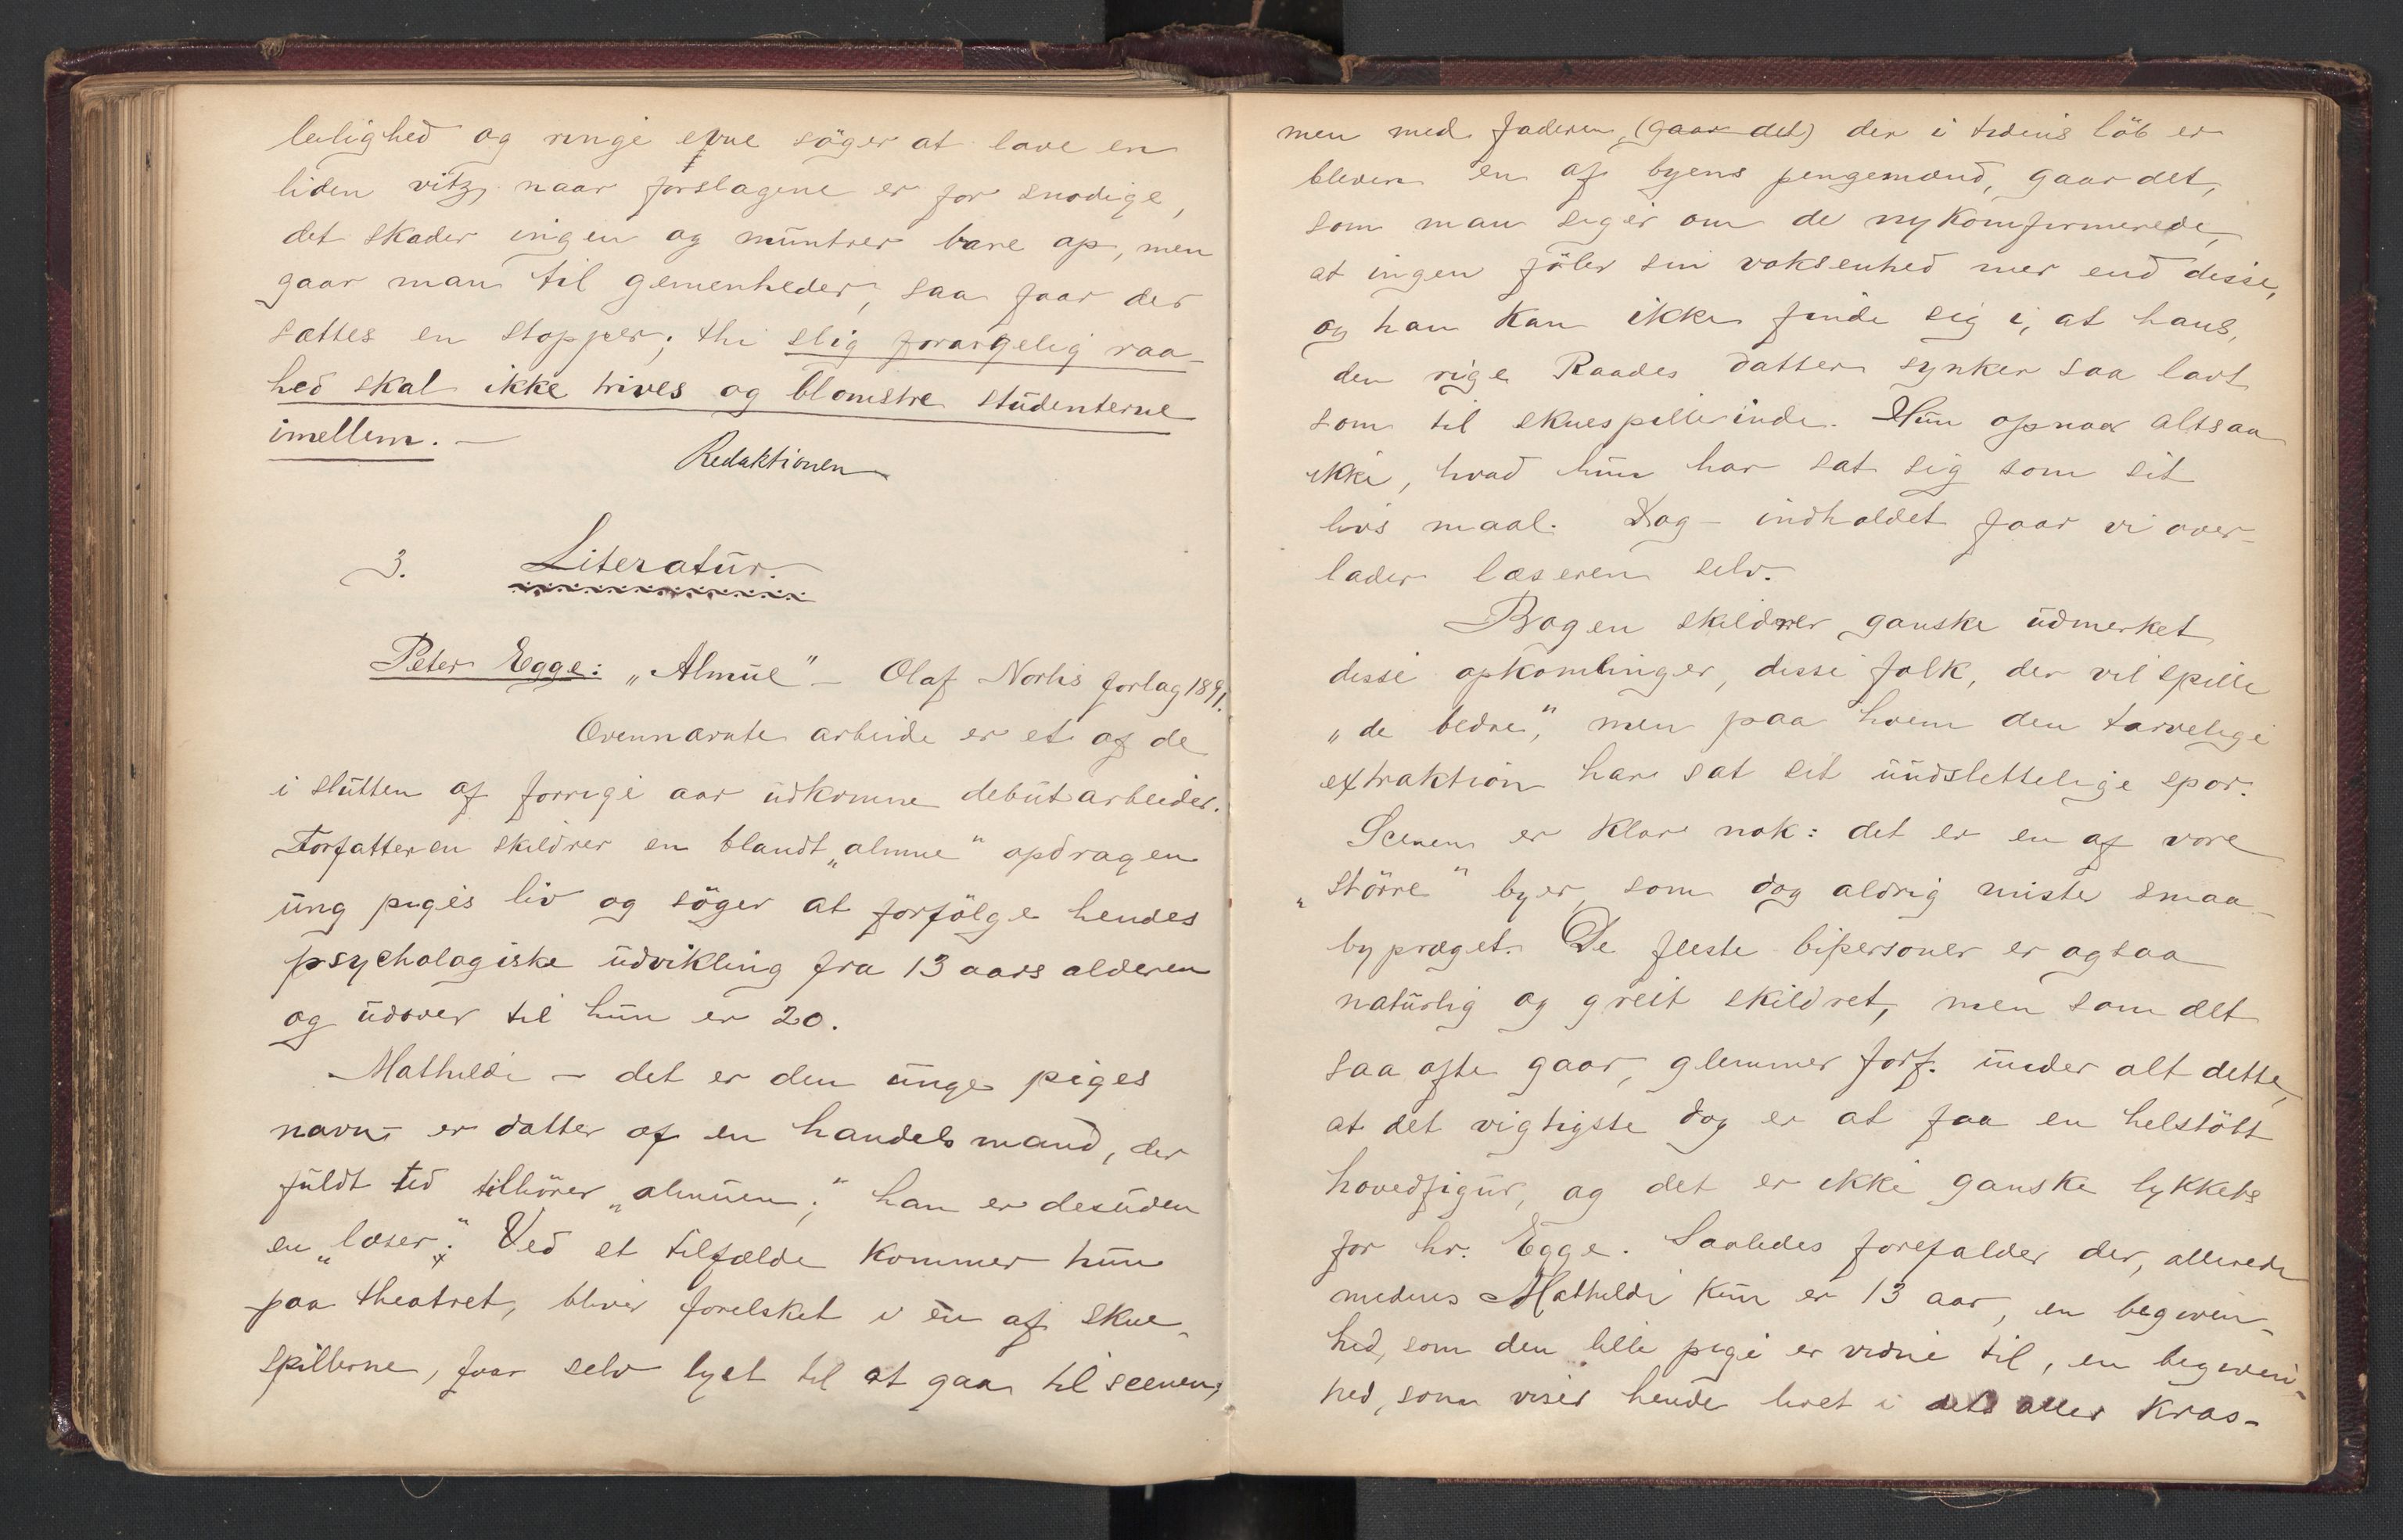 leilighed og ringe evne söger at lave en
liden vitz, naar forslagene er for snodige,
det skader ingen og muntrer bare op, men
gaar man til gemenheder, saa faar der
sættes en stopper; thi slig forargelig raa-
hed skal ikke trives og blomstre studenterne
imellem. —
Redaktionen
3. Literatur.
Peter Egge: „Almue" — Olaf Norlis forlag 1891.
Ovennævnte arbeide er et af de
i slutten af forrige aar udkomne debutarbeider.
Forfatteren skildrer en blandt „almue" opdragen
ung piges liv og söger at forfölge hendes
psychologiske udvikling fra 13 aars alderen
og udover til hun er 20.
Mathilde — det er den unge piges
navn — er datter af en handelsmand, der
fuldt ud tilhörer „almuen;" han er desuden
en „læser". Ved et tilfælde kommer hun
paa theatret, bliver forelsket i en af skue-
spillerne, faar selv lyst til at gaa til scenen;
men med faderen, (gaar det) der i tidens löb er
bleven en af byens pengemænd, gaar det,
som man siger om de nykomfirmerede,
at ingen föler sin voksenhed mer end disse,
og han kan ikke finde sig i, at hans,
den rige Raades datter synker saa lavt
som til skuespillerinde. Hun opnaar altsaa
ikke, hvad hun har sat sig som sit
livs maal. Dog — indholdet faar vi over-
lader læseren selv.
Bogen skildrer ganske udmerket
disse opkomlinger, disse folk, der vil spille
„de bedre", men paa hvem den tarvelige
extraktion har sat sit uudslettelige spor.
Scenen er klar nok: det er en af vore
„större" byer, som dog aldrig mister smaa-
bypræget. De fleste bipersoner er ogsaa
naturlig og greit skildret, men som det
saa ofte gaar, glemmer forf. under alt dette,
at det vigtigste dog er at faa en helstöbt
hovedfigur, og det er ikke ganske lykkets
for hr. Egge. Saaledes forefalder der, allerede
medens Mathilde kun er 13 aar, en begiven-
hed, som den lille pige er vidne til, en begiven-
hed, som viser hende livet i dets aller kras-